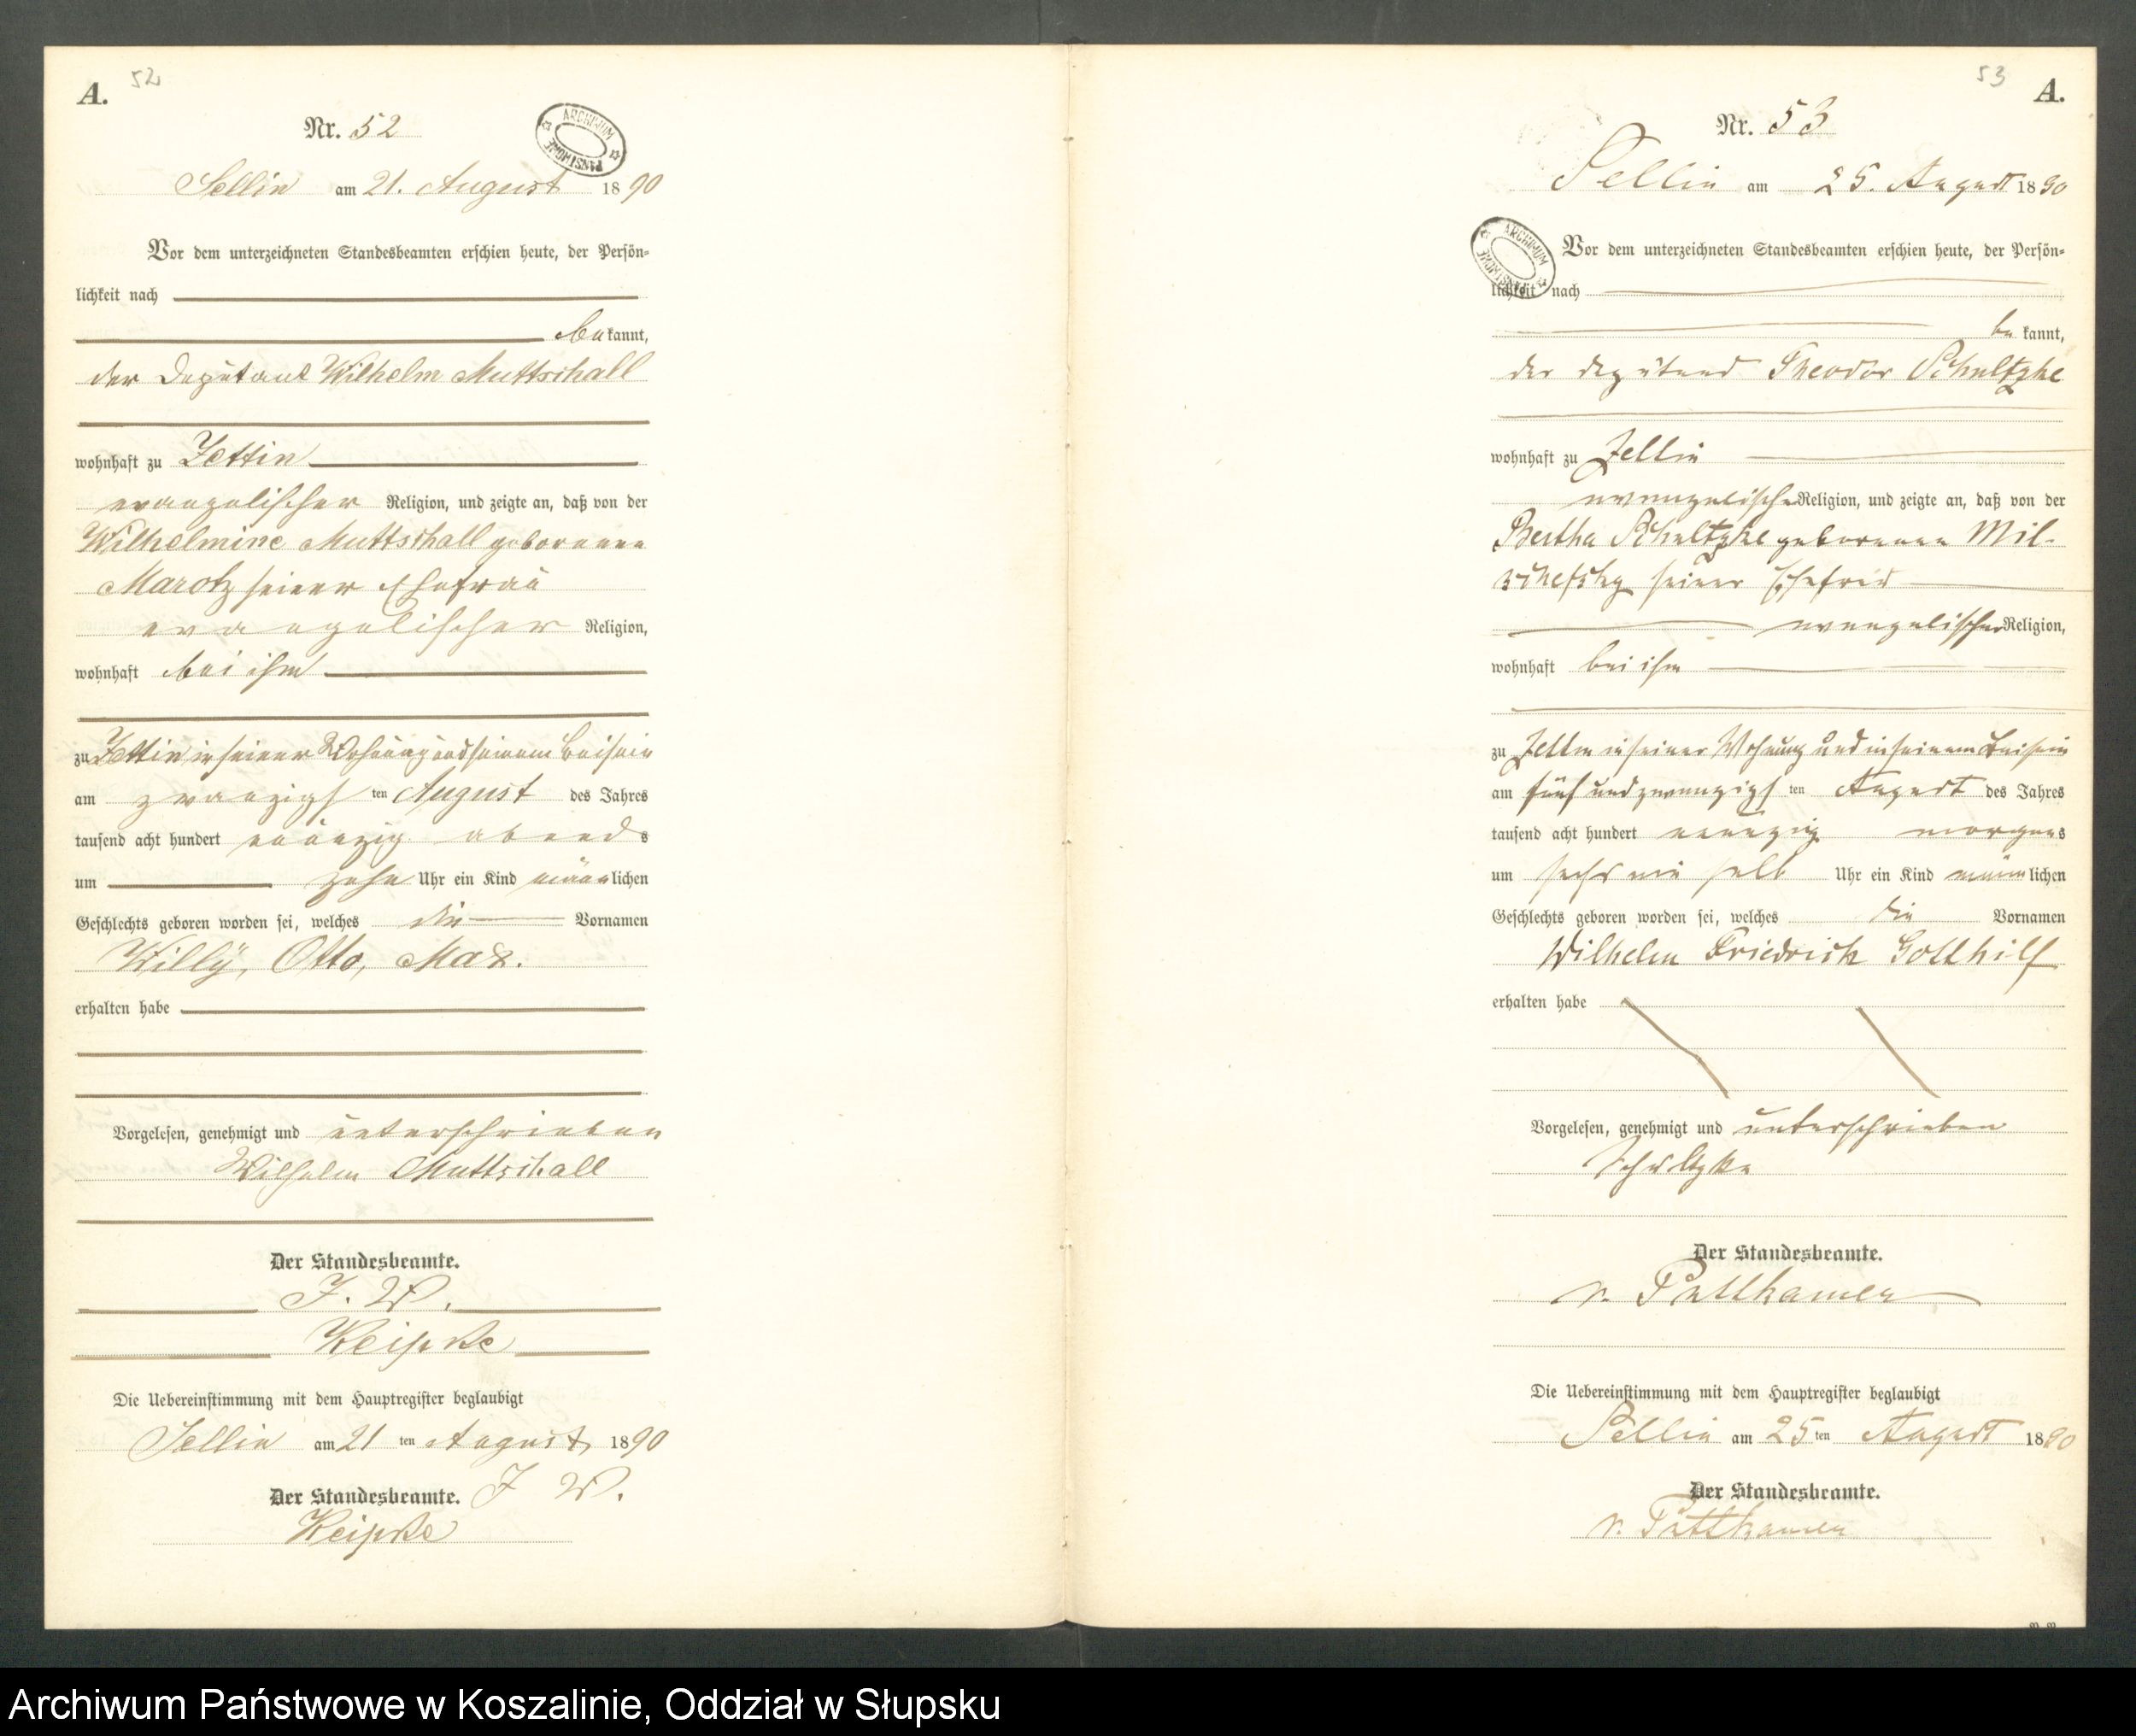 A.
52
Nr. 52
ARCHIWUM PAŃSTWOWE
Sellin am 21. August 1890
Vor dem unterzeichneten Standesbeamten erschien heute, der Persön-
lichkeit nach
bekannt,
der Deputant Wilhelm Muttschall
wohnhaft zu Jettin
evangelischer Religion, und zeigte an, daß von der
Wilhelmine Muttschall geborenen
Marotz seiner Ehefrau
evangelischer Religion,
wohnhaft bei ihm
zu Jettin in seiner Wohnung und seinem Beisein
am zwanzigsten August des Jahres
tausend acht hundert neunzig abends
um zehn Uhr ein Kind männlichen
Geschlechts geboren worden sei, welches die Vornamen
Willy, Otto, Max.
erhalten habe
Vorgelesen, genehmigt und unterschrieben
Wilhelm Muttschall
Der Standesbeamte.
J. V.
Keipke
Die Uebereinstimmung mit dem Hauptregister beglaubigt
Sellin am 21 ten August 1890
Der Standesbeamte. J. V.
Keipke
53
A.
Nr. 53
Sellin am 25. August 1890
ARCHIWUM PAŃSTWOWE
Vor dem unterzeichneten Standesbeamten erschien heute, der Persön-
lichkeit nach
bekannt,
der Deputant Theodor Schultzke
wohnhaft zu Zellin
evangelischer Religion, und zeigte an, daß von der
Bertha Schultzke geborenen Mil-
seiner Ehefrau
evangelischer Religion,
wohnhaft bei ihm
zu Zellin in seiner Wohnung und in seinem Beisein
am fünf und zwanzigsten August des Jahres
tausend acht hundert neunzig morgens
um sechs ein halb Uhr ein Kind männlichen
Geschlechts geboren worden sei, welches die Vornamen
Wilhelm Friedrich Gotthilf
erhalten habe
Vorgelesen, genehmigt und unterschrieben
Schultzke
Der Standesbeamte.
v. Puttkamer
Die Uebereinstimmung mit dem Hauptregister beglaubigt
Sellin am 25 ten August 1890
Der Standesbeamte.
v. Puttkamer
Archiwum Państwowe w Koszalinie, Oddział w Słupsku